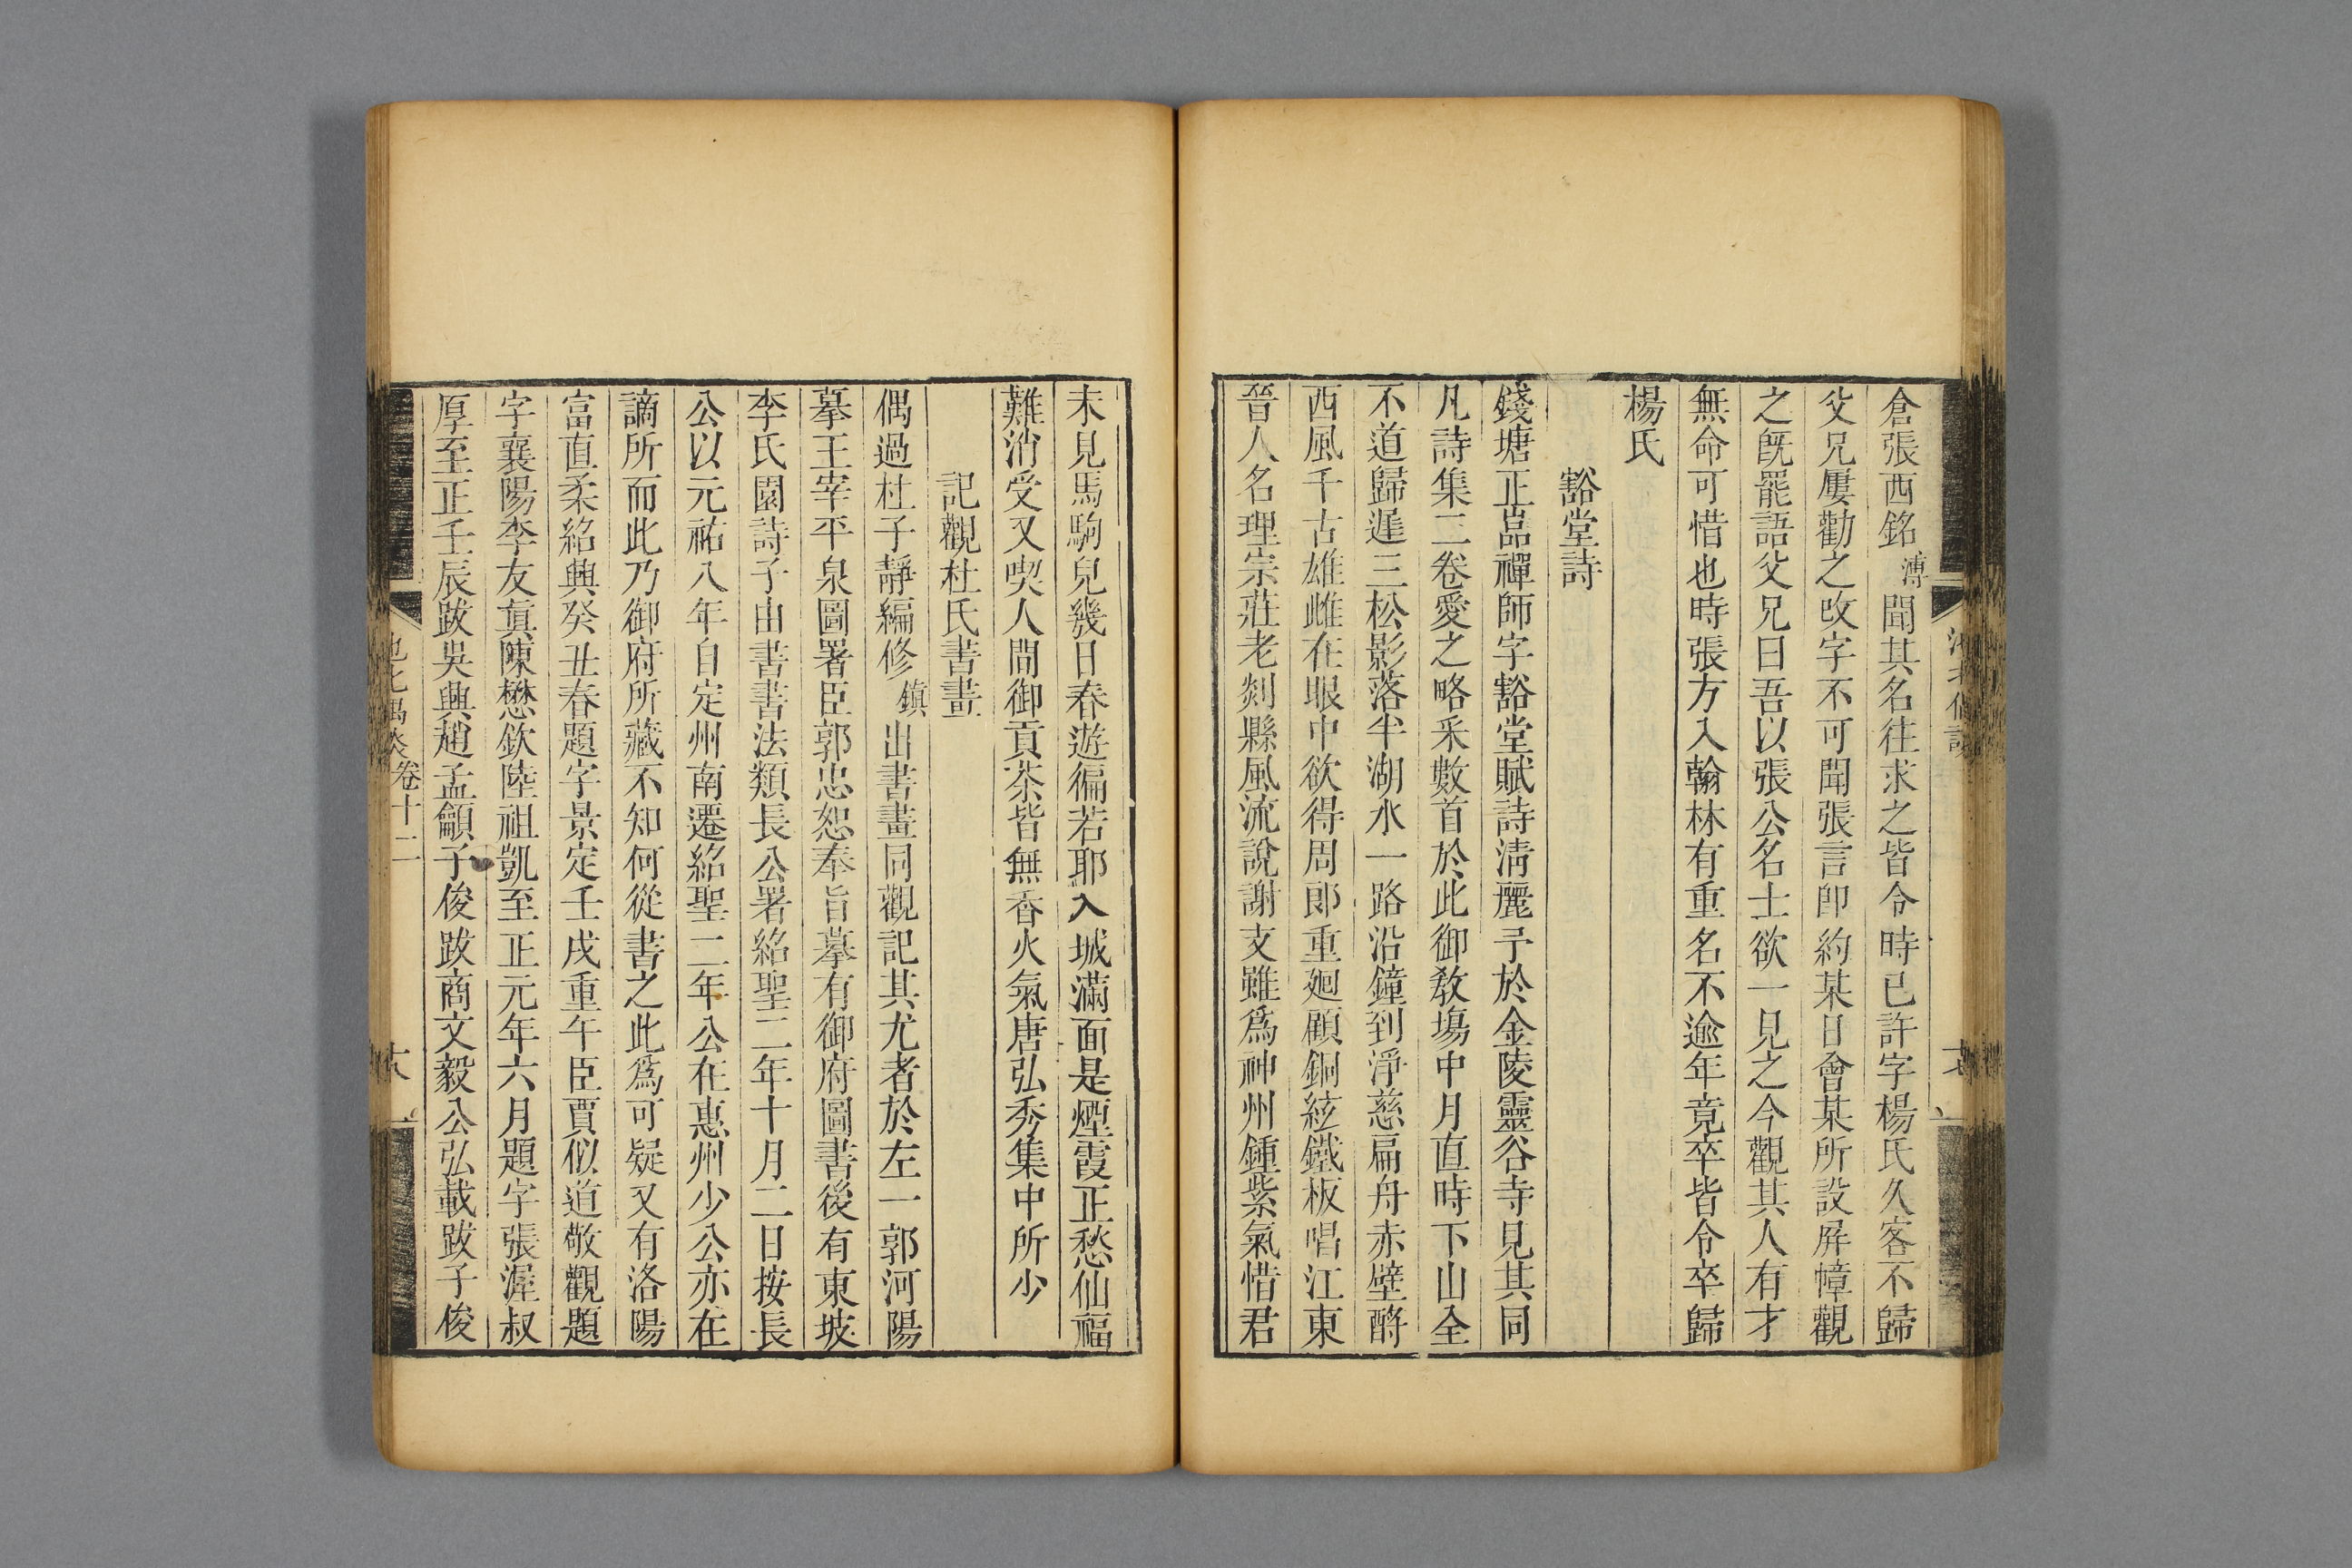 倉張西銘溥聞其名往求之皆令時已許字楊氏久客不歸
父兄屢勸之改字不可聞張言卽約某日會某所設屛幛觀
之旣罷語父兄曰吾以張公名士欲一見之今觀其人有才
無命可惜也時張方入翰林有重名不逾年竟卒皆令卒歸
楊氏
豁堂詩
錢塘正嵓禪師字豁堂賦詩淸麗予於金陵靈谷寺見其同
凡詩集三卷愛之略采數首於此御敎塲中月直時下山全
不道歸遲三松影落半湖水一路沿鐘到淨慈扁舟赤壁酹
西風千古雄雌在眼中欲得周郞重廻顧銅絃鐵板唱江東
晉人名理宗莊老剡縣風流說謝支雖爲神州鍾紫氣惜君
未見馬駒兒幾日春遊徧若耶入城滿面是煙霞正愁仙福
難消受又喫人間御貢茶皆無香火氣唐弘秀集中所少
記觀杜氏書畫
偶過杜子靜編修鎮出書畫同觀記其尤者於左一郭河陽
摹王宰平泉圖署臣郭忠恕奉旨摹有御府圖書後有東坡
李氏園詩子由書書法類長公署紹聖二年十月二日按長
公以元祐八年自定州南遷紹聖二年公在惠州少公亦在
謫所而此乃御府所藏不知何從書之此爲可疑又有洛陽
富直柔紹興癸丑春題字景定壬戌重午臣賈似道敬觀題
字襄陽李友眞陳懋欽陸祖凱至正元年六月題字張渥叔
厚至正壬辰跋吳興趙孟籲子俊跋商文毅公弘載跋子俊
卷十二